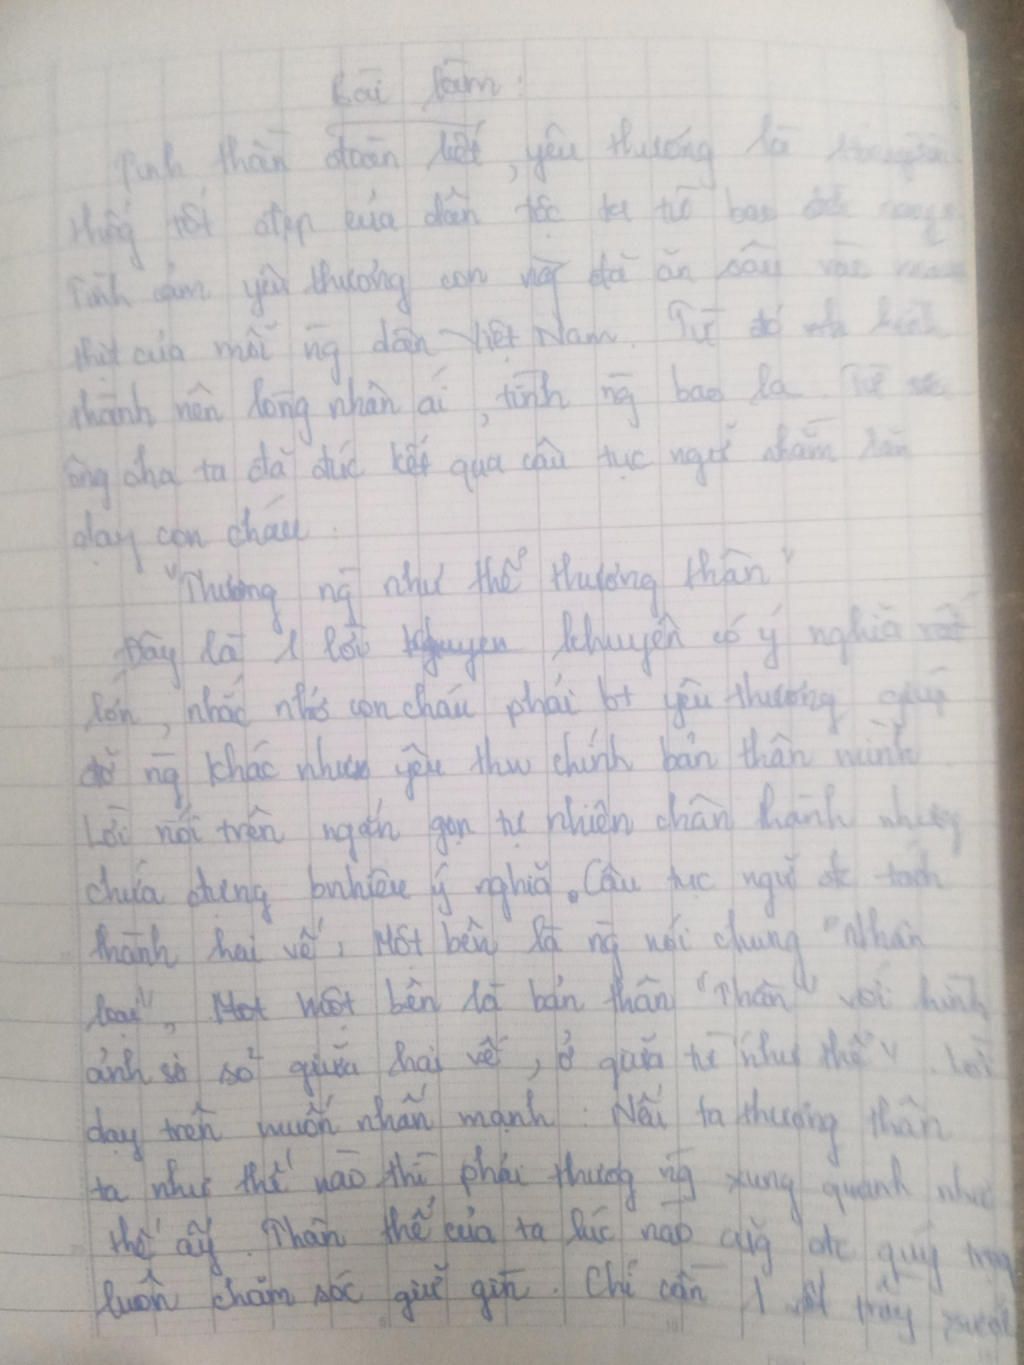 Bài làm:
Tinh thần đoàn kết, yêu thương là
thống tốt đẹp của dân tộc ta từ bao
Tình cảm yêu thương con ng đã ăn sâu vào
thịt của mỗi ng dân Việt Nam. Từ đó
thành nên lòng nhân ái, tình ng bao la.
ông cha ta đã đúc kết qua câu tục ngữ nhằm răn
dạy con cháu:
"Thương ng như thể thương thân"
Đây là 1 lời khuyên có ý nghĩa rất
lớn, nhắc nhở con cháu phải bt yêu thương giúp
đỡ ng khác như yêu thw chính bản thân mình.
Lời nói trên ngắn gọn tự nhiên chân thành nhưng
chứa đựng bnhiêu ý nghĩa. Câu tục ngữ đc tách
thành hai vế, Một bên là ng nói chung "Nhân
loại", một bên là bản thân "Thân" với hình
ảnh so sánh giữa hai vế, ở giữa từ "như thể". Lời
dạy trên muốn nhấn mạnh: Nếu ta thương thân
ta như thế nào thì phải thương ng xung quanh như
thế ấy. Thân thể của ta lúc nào cũg đc quý trọng
luôn chăm sóc giữ gìn. Chỉ cần 1 vết trầy xước